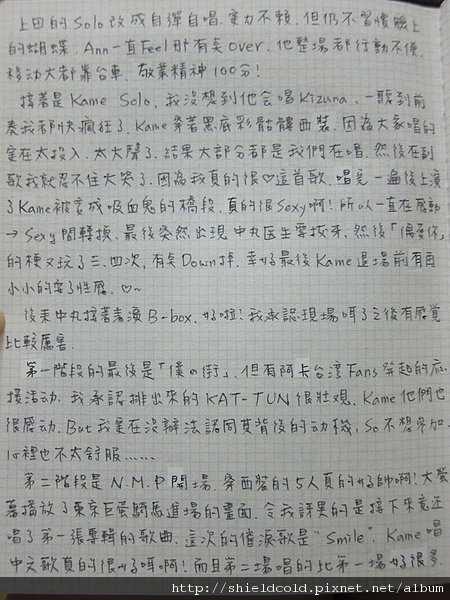 上田的Solo改成自彈自唱,實力不賴,但仍不習慣臉上
的蝴蝶,Ann一直Feel那有点over,他整場都行動不便,
移动大都靠台車,敬業精神100分!
接著是Kame Solo,我沒想到他會唱Kizuna,一聽到前
奏我都快瘋狂了,Kame穿著黑底彩骷髏西裝,因為大家唱的
實在太投入,太大聲了,結果大部分都是我們在唱,然後在副
歌我就忍不住大哭了,因為我真的很♡這首歌,唱完一遍後上演
了Kame被變成吸血鬼的橋段,真的很Sexy啊!所以一直在感動
→Sexy間轉換,最後突然出現中丸医生要拔牙,然後「偶愛你」
的梗又玩了三、四次,有点Down掉,幸好最後Kame退場前有再
小小的耍了性感,♡~
後來中丸接著表演B-box,好啦!我承認現場听了之後有感覺
比較厲害,
第一階段的最後是「僕の街」,但有阿卡台灣Fans發起的应
援活动,我承認排出來的KAT-TUN很壯觀,Kame他們也
很感动,But我是在沒辦法認同其背後的动機,So不想參加
心裡也不太舒服......
第二階段是N.M.P開場,穿西裝的5人真的好帥啊!大螢
幕播放了東京巨蛋騎馬進場的畫面,令我訝異的是接下來竟还
唱了第一張專輯的歌曲,這次的催淚歌是"Smile",Kame唱
中文歌真的很好听啊!而且第二場唱的比第一場好很多,
http://shieldcold.pixnet.net/album